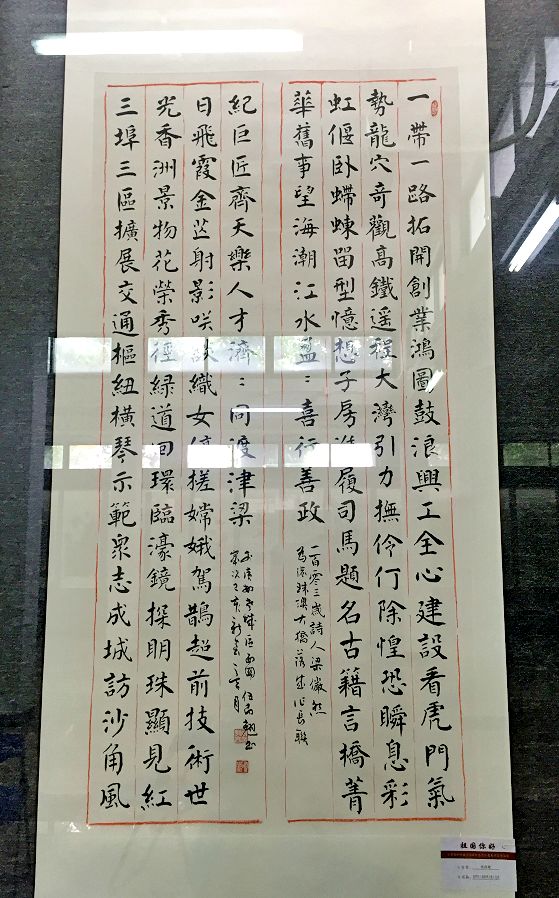 一帶一路拓開創業鴻圖鼓浪興工全心建設看虎門氣
勢龍穴奇觀高鐵遥程大灣引力撫伶仃除惶恐瞬息彩
虹偃卧螮蝀留型憶想子房進履司馬題名古籍言橋菁
華舊事望海潮江水盈〻喜行善政
一百零三歲詩人梁儼然
為港珠澳大橋落成作長聯
三埠三區擴展交通樞紐橫琴示範眾志成城訪沙角風
光香洲景物花榮秀徑緑道回環臨濠鏡探明珠顯見紅
日飛霞金茫射影咲談織女停搓嫦娥駕鵲超前技術世
紀巨匠齊天樂人才濟〻同渡津梁
歲次己亥
祖国你好